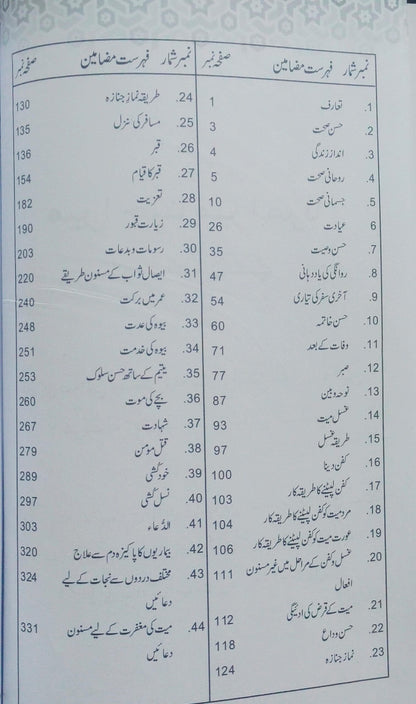 نمبر شمار فہرست مضامین صفحہ نمبر
1. تعارف 1
2. حسن صحت 3
3. انداز زندگی 4
4. روحانی صحت 5
5. جسمانی صحت 10
6 عیادت 26
7. حسن وصیت 35
8. روانگی کی یاد دہانی 47
9. آخری سفر کی تیاری 54
10. حسن خاتمہ 60
11. وفات کے بعد 71
12. صبر 77
13. نوحہ و بین 87
14. غسل میت 93
15. طریقہ غسل 97
16. کفن دینا 100
17. کفن لپیٹنے کا طریقہ کار 103
18. مرد میت کو کفن لپیٹنے کا طریقہ کار 104
19. عورت میت کو کفن لپیٹنے کا طریقہ کار 106
20. غسل و کفن کے مراحل میں غیر مسنون 111
افعال
21. میت کے قرض کی ادائیگی 112
22. حسن وداع 118
23. نماز جنازہ 124
نمبر شمار فہرست مضامین صفحہ نمبر
24. طریقہ نماز جنازہ 130
25. مسافر کی منزل 135
26. قبر 136
27. قبر کا قیام 154
28. تعزیت 182
29. زیارت قبور 190
30. رسومات و بدعات 203
31. ایصال ثواب کے مسنون طریقے 220
32. عمر میں برکت 240
33. بیوہ کی عدت 248
34. بیوہ کی خدمت 251
35. یتیم کے ساتھ حسن سلوک 253
36. بچے کی موت 260
37. شہادت 267
38. قتل مومن 279
39. خودکشی 289
40. نسل کشی 297
41. الدعاء 303
42. بیماریوں کا پاکیزہ دم سے علاج 320
43. مختلف دردوں سے نجات کے لیے 324
دعائیں
44. میت کی مغفرت کے لیے مسنون 331
دعائیں